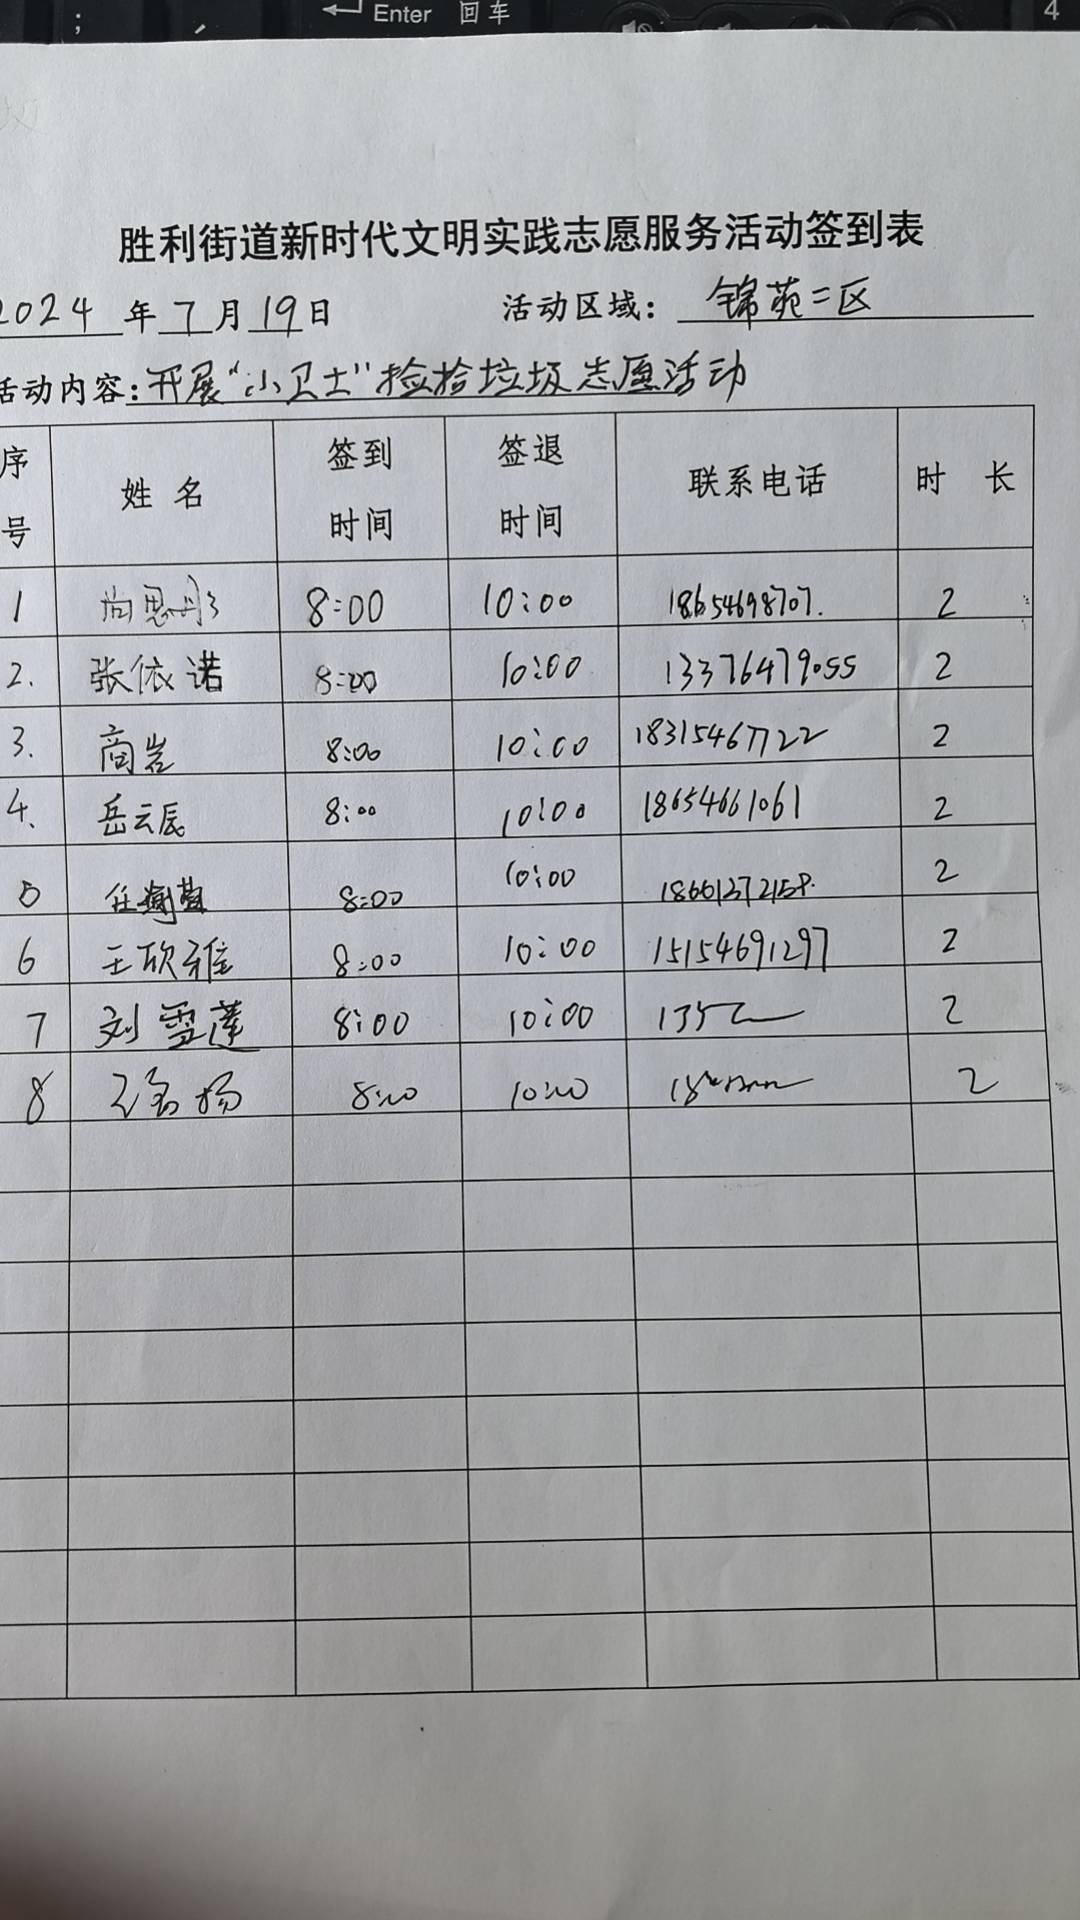 ; , Enter 回车 4
胜利街道新时代文明实践志愿服务活动签到表
2024 年 7 月 19 日 活动区域: 锦苑二区
活动内容: 开展“小卫士”捡拾垃圾志愿活动
序号 姓名 签到时间 签退时间 联系电话 时长
1 尚思彤 8:00 10:00 18654698707. 2
2. 张依诺 8:00 10:00 13376479055 2
3. 商岩 8:00 10:00 18315467722 2
4. 岳云辰 8:00 10:00 18654661061 2
5 任 8:00 10:00 18661372158. 2
6 王欣雅 8:00 10:00 15154691297 2
7 刘雪莲 8:00 10:00 135 2
8 8:00 10:00 2